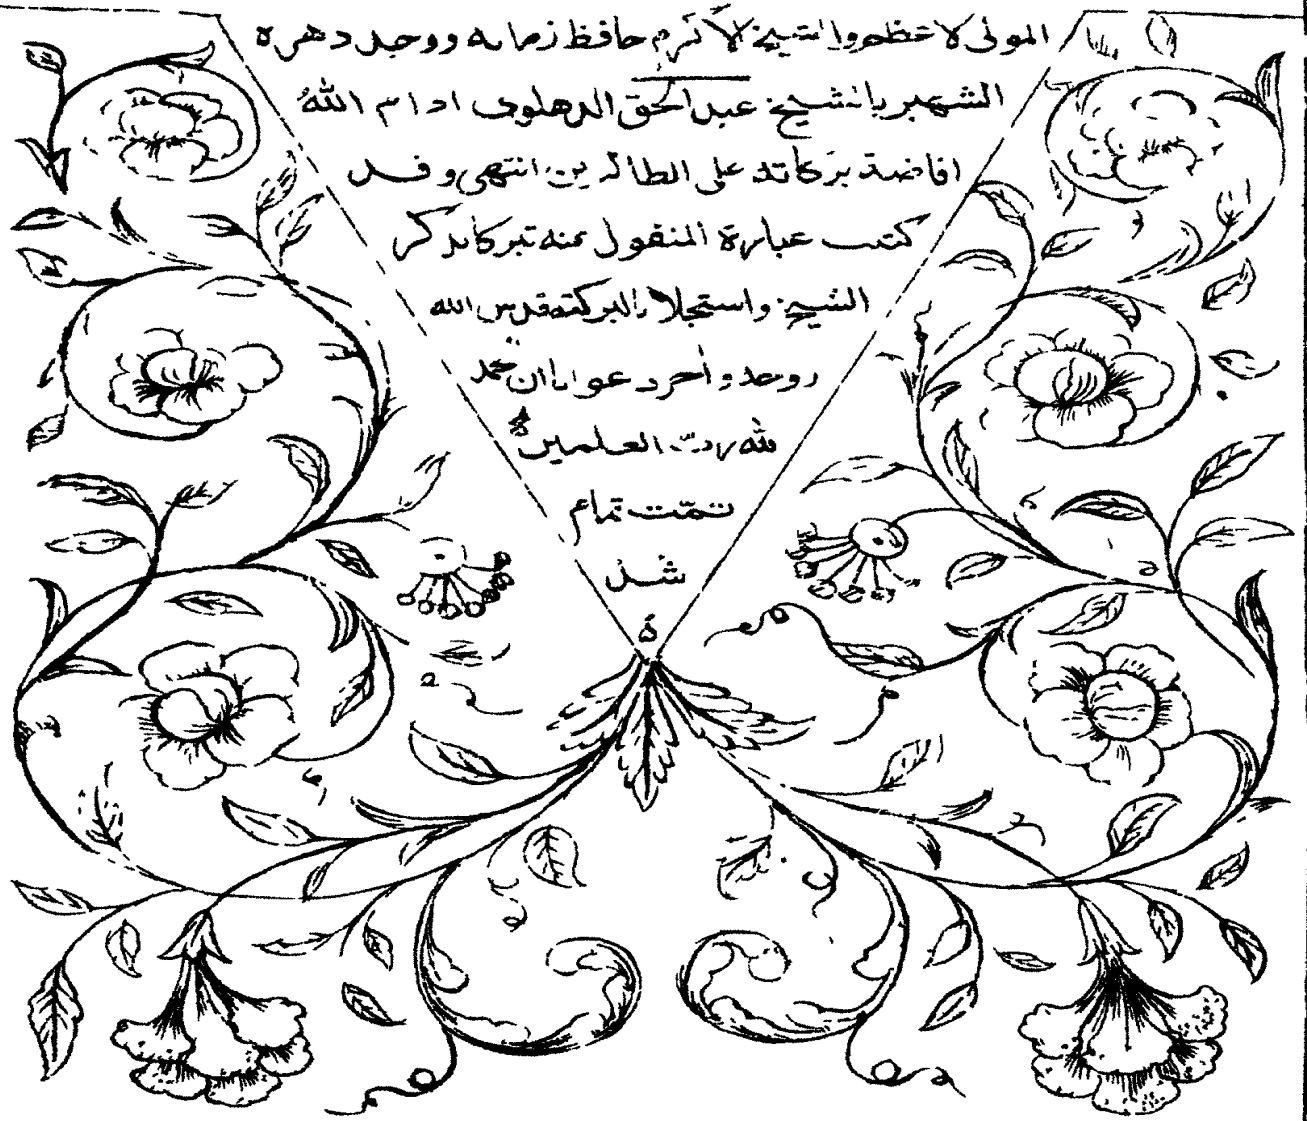 المولى الاعظم والشيخ الاكرم حافظ زمانه ووحيد دهره
الشهير بالشيخ عبد الحق الدهلوي ادام الله
افاضة بركاته على الطالبين انتهى وقد
كتبت عبارة المنقول عنه تبركا بذكر
الشيخ واستجلابا لبركته قدس الله
روحه وآخر دعوانا ان الحمد
لله رب العلمين
تمت تمام
شد
ه